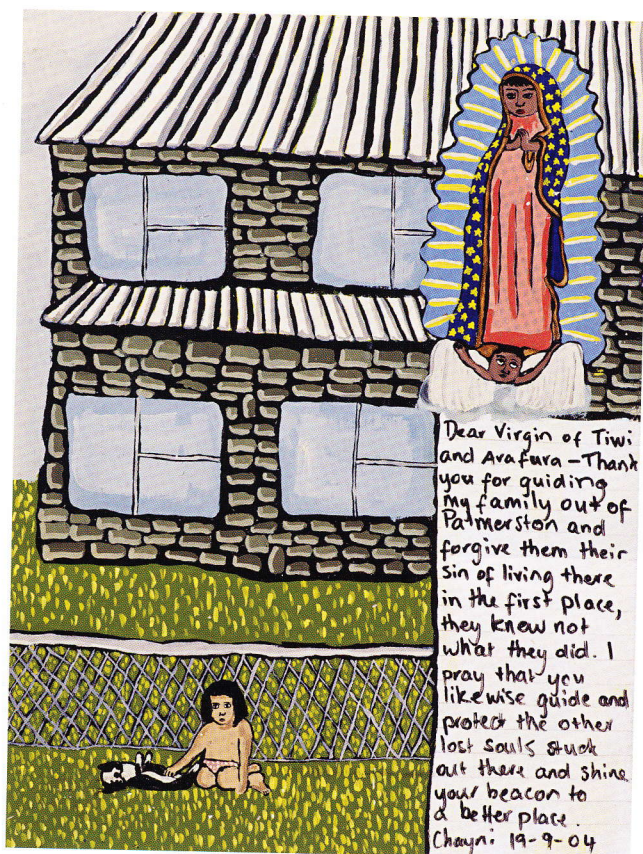 Dear Virgin of Tiwi
and Arafura - Thank
you for guiding
my family out of
Palmerston and
forgive them their
sin of living there
in the first place,
they know not
what they did. I
pray that you
likewise guide and
protect the other
lost souls stuck
out there and shine
your beacon to
a better place.
Chayni 19-9-04